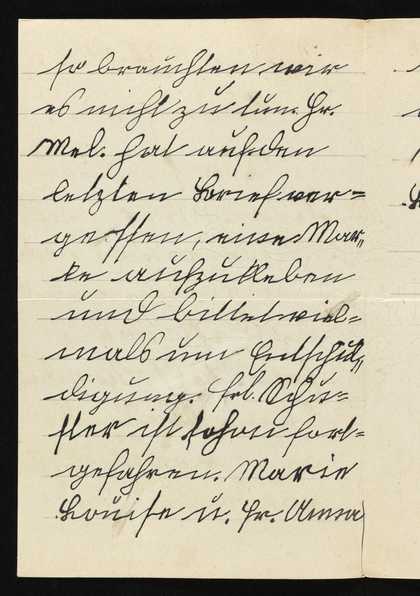 so brauchten wir
es nicht zu tun. Fr.
Mel. hat auf den
letzten Brief ver=
gessen, eine Mar„
ke aufzukleben
und bittet viel=
mals um Entschul„
digung. Frl. Schu=
ster ist schon fort=
gefahren. Marie
Louise u. Fr. Anna